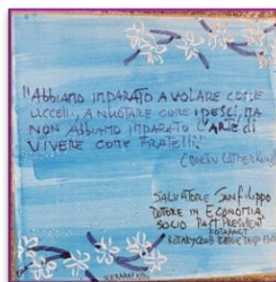 "Abbiamo imparato a volare come
uccelli, a nuotare come i pesci, ma
non abbiamo imparato l'arte di
vivere come fratelli"
Salvatore Sanfilippo
Dottore in Economia
Socio Past President
Rotaract